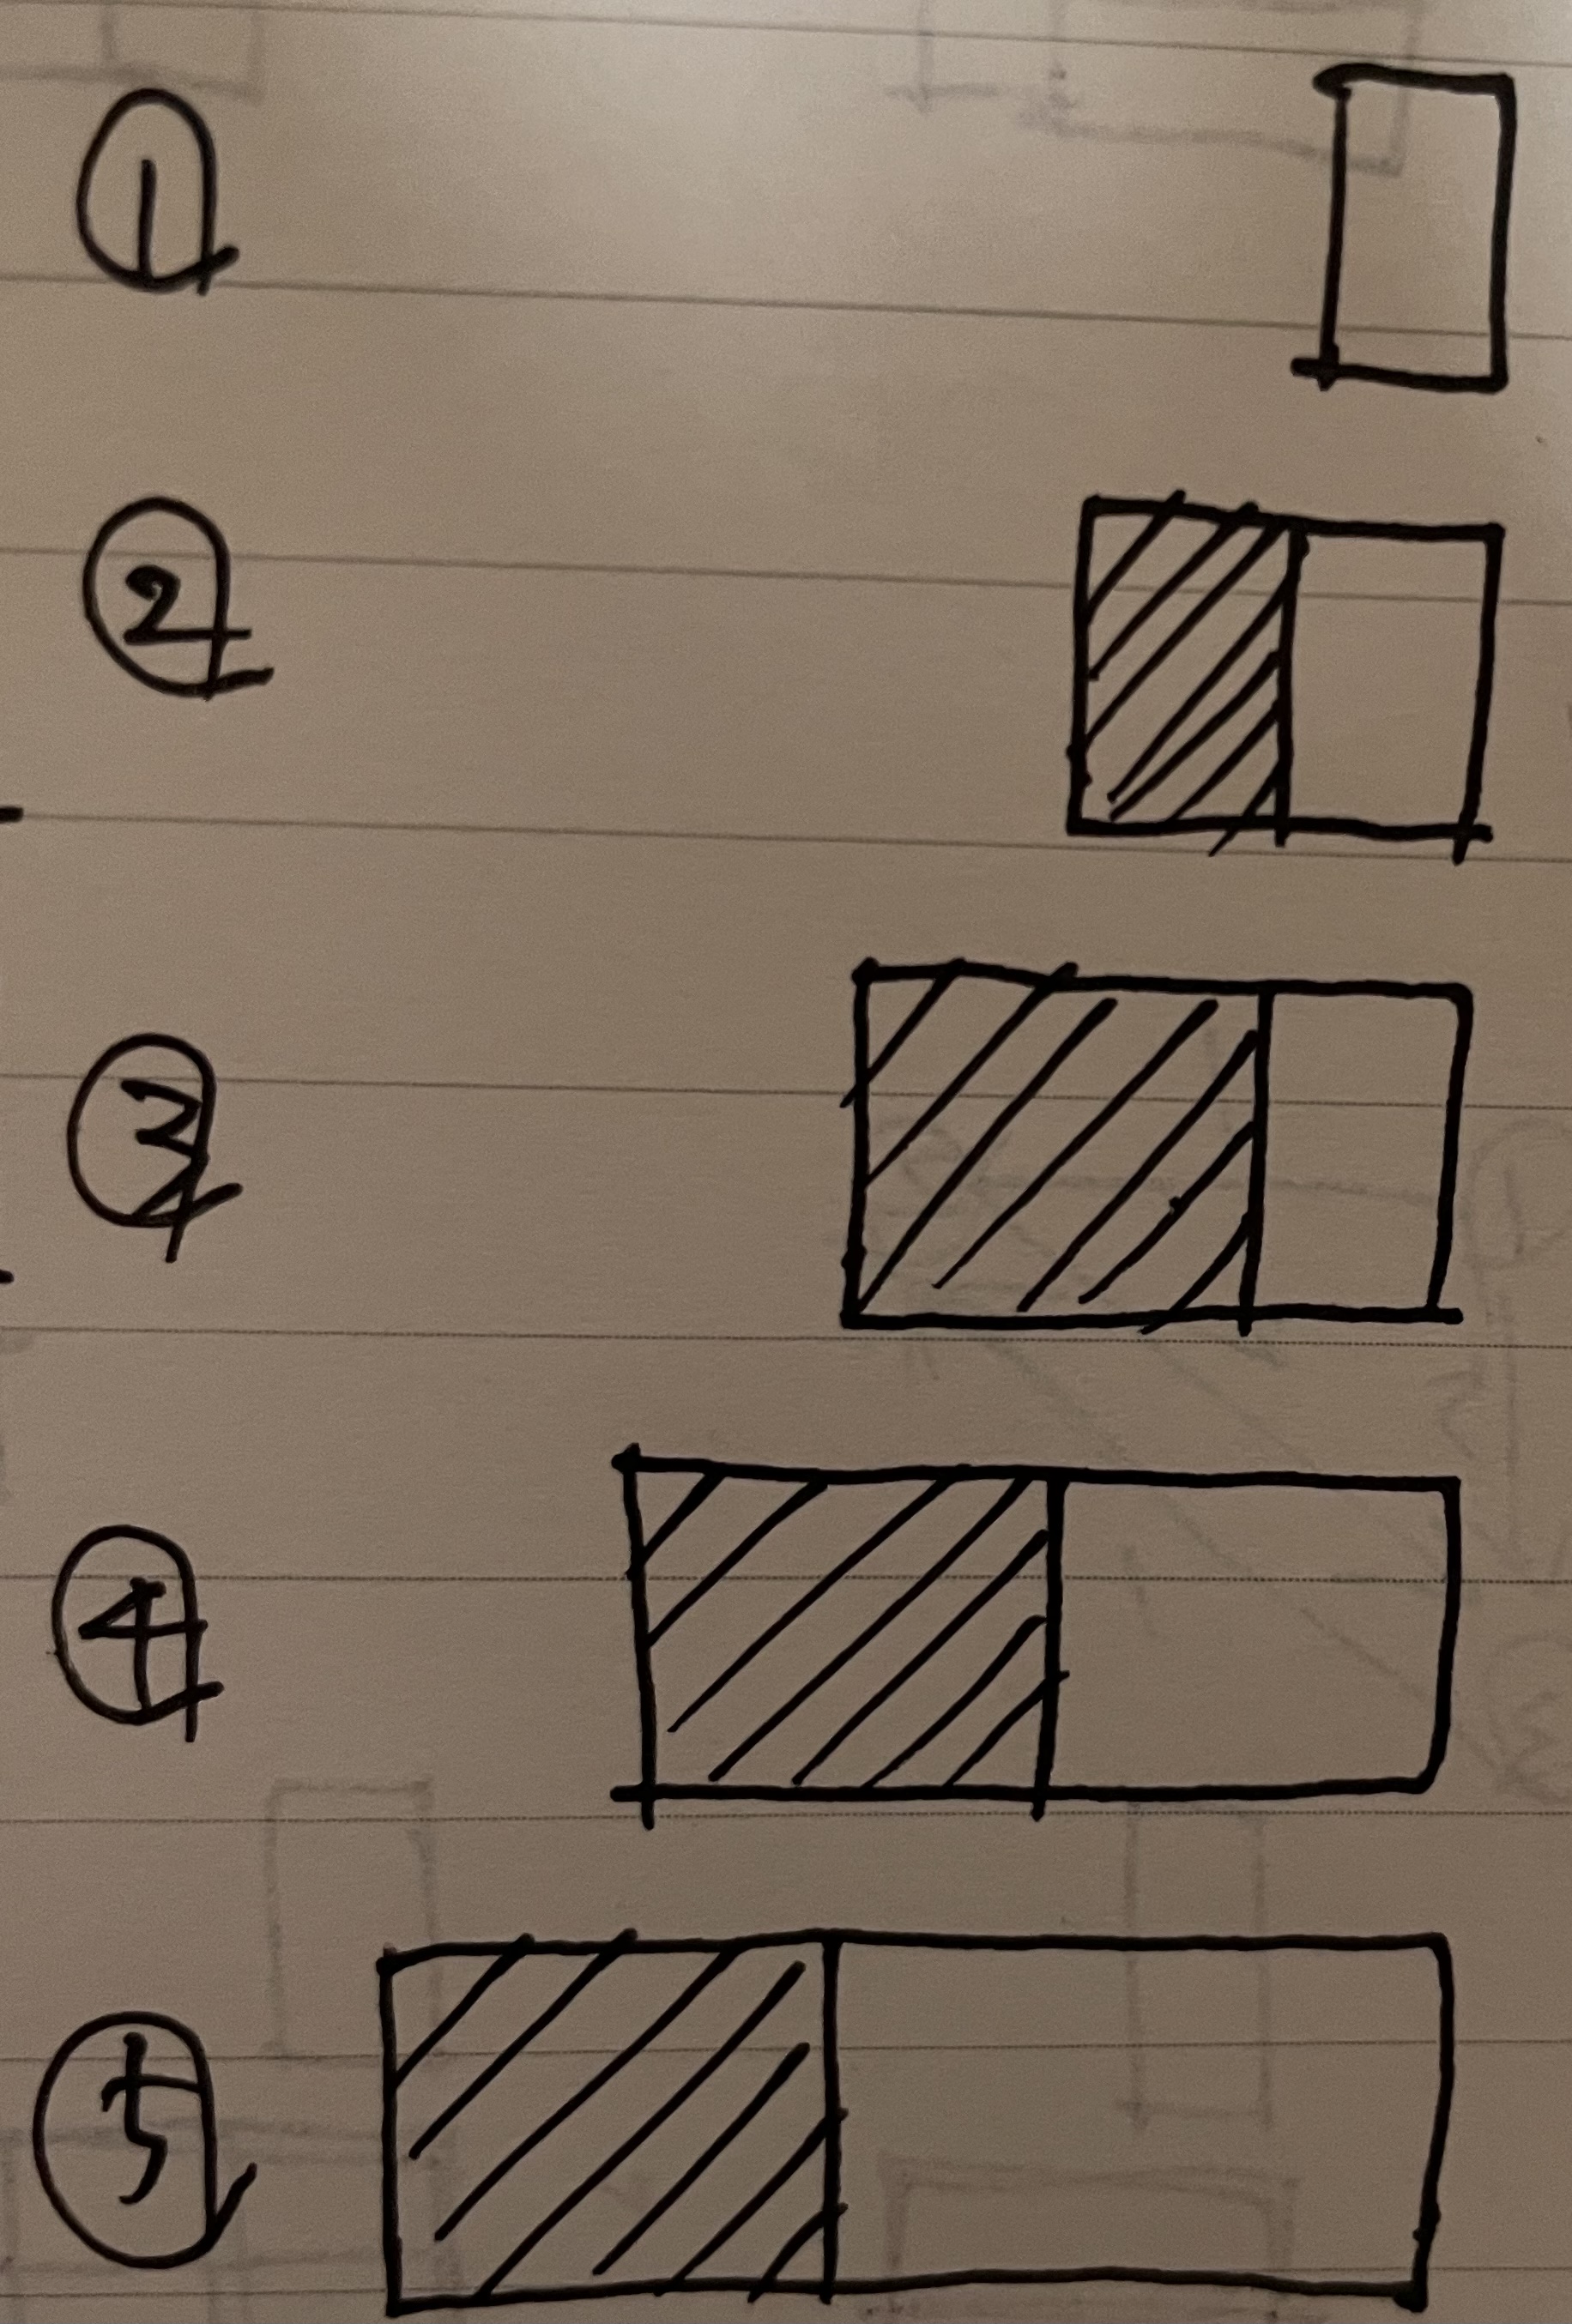 ①
②
③
④
⑤